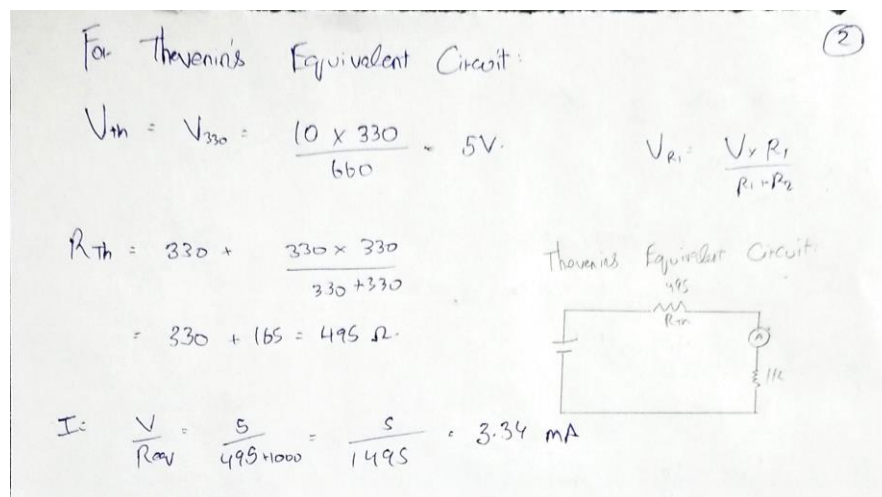 For Thevenin's Equivalent Circuit:
2
Vth = V330 = 10 x 330 / 660 = 5V.
VR1 = V x R1 / R1 + R2
RTh = 330 + 330 x 330 / 330 + 330
= 330 + 165 = 495 Ω.
Thevenins Equivalent Circuit:
495
RTh
A
1k
I = V / Req = 5 / 495+1000 = 5 / 1495 = 3.34 mA